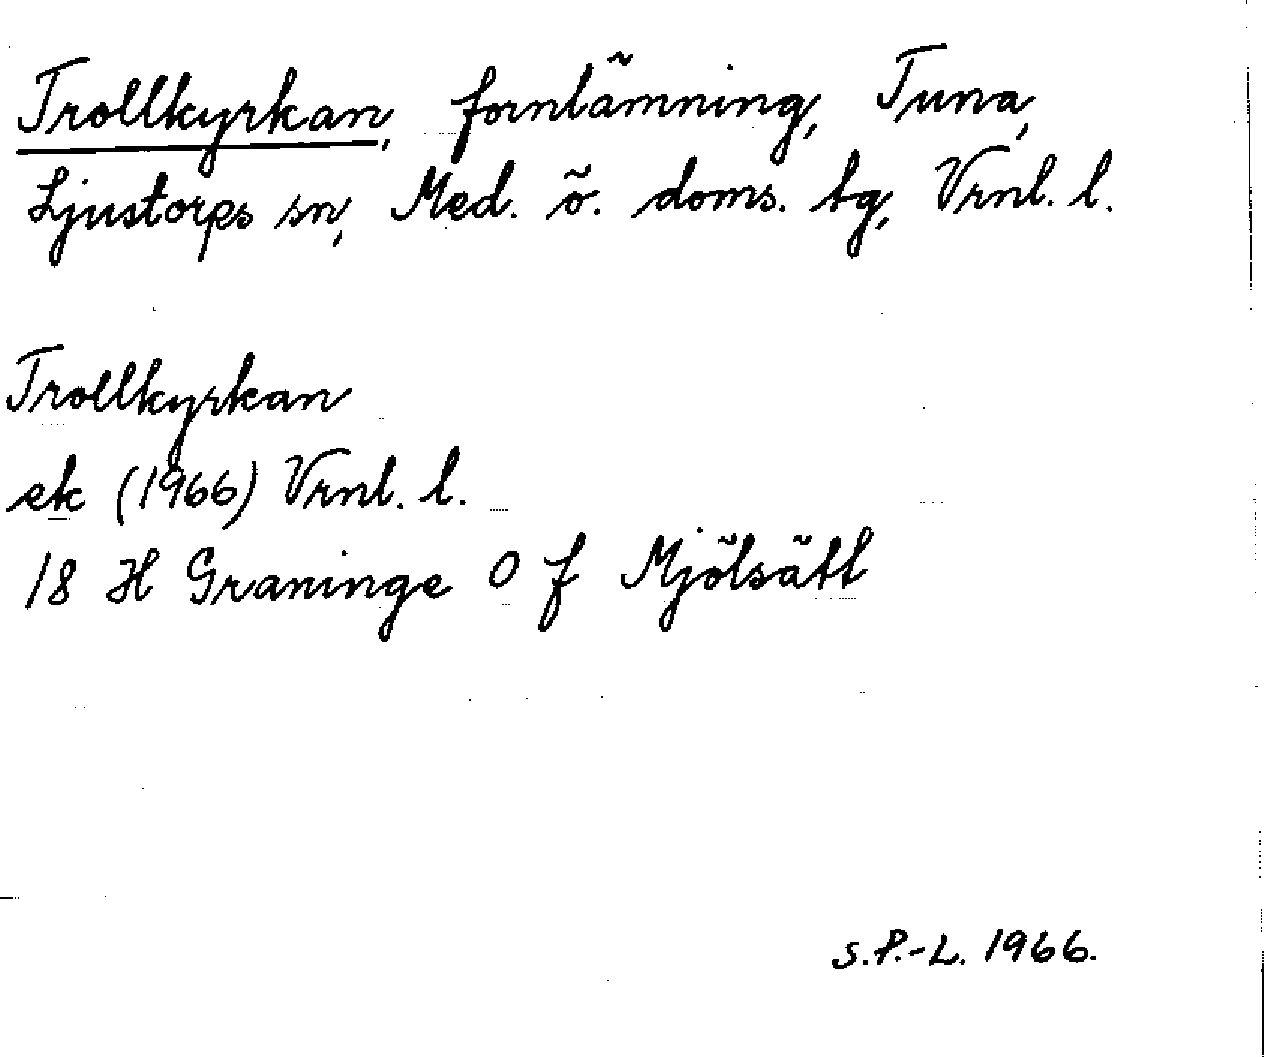 Trollkyrkan, fornlämning, Tuna,
Ljustorps sn, Med. ö. doms. tg, Vrnl. l.
Trollkyrkan
ek (1966) Vrnl. l.
18 H Graninge O f Mjölsätt
S.P.-L. 1966.